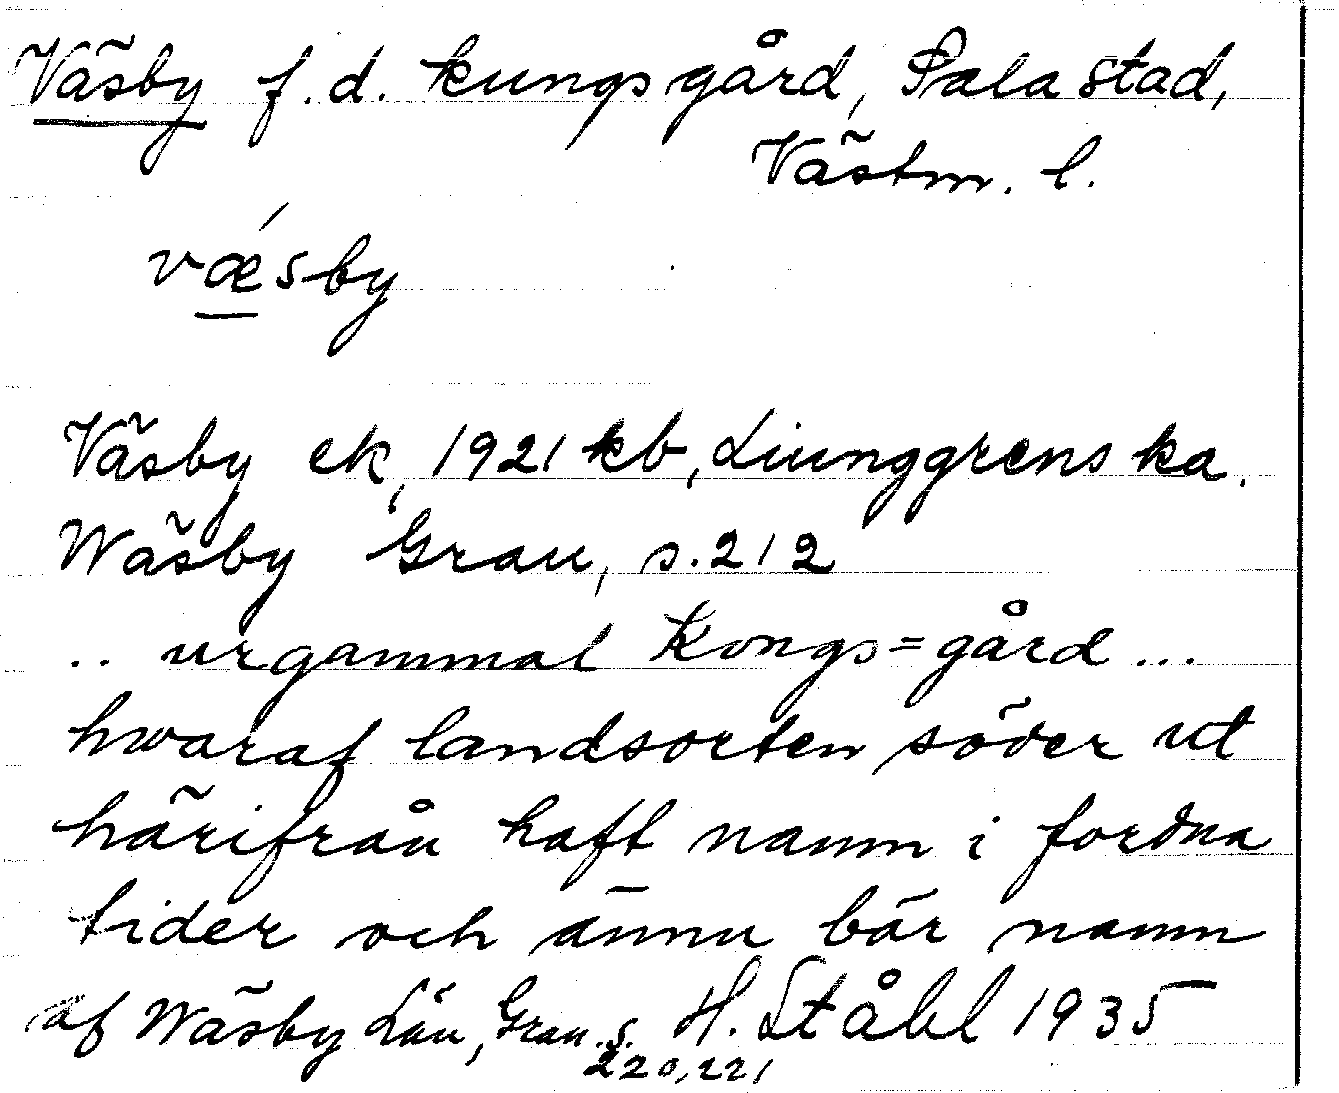 Väsby f.d. kungsgård, Sala stad,
Västm. l.
vǽsby
Väsby ek, 1921 kb, Liunggrens ka.
Wäsby Grau, s. 212
.. urgammal Kongs=gård ...
hwaraf landsorten söder ut
härifrån haft namn i fordna
tider och ännu bär namn
af Wäsby Län, Grau. s. H. Ståhl 1935
220, 221